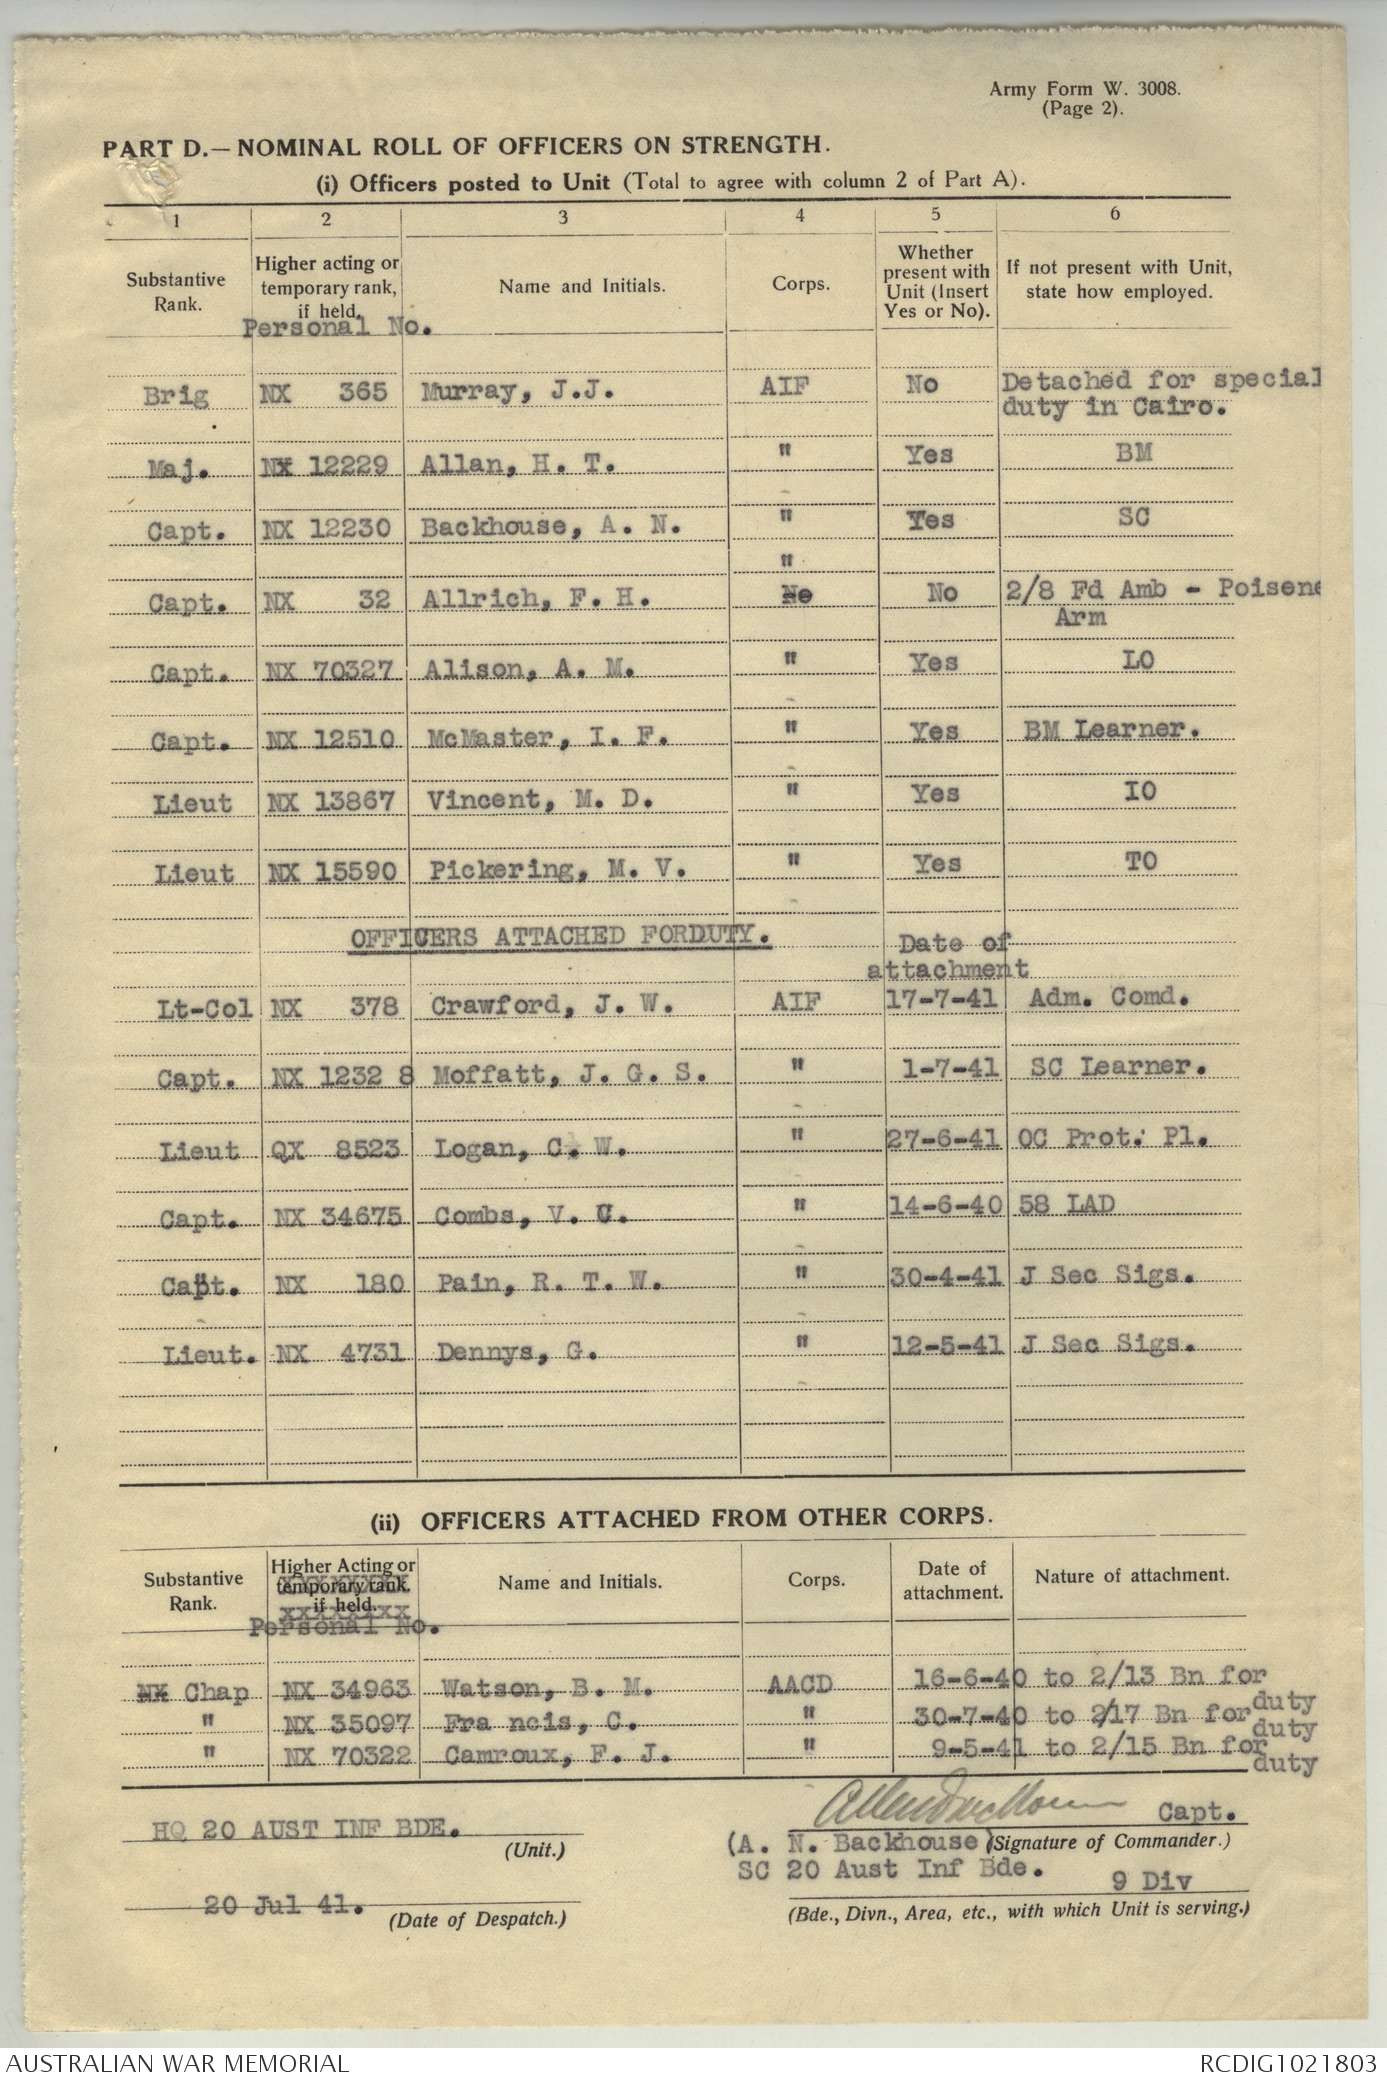 Army Form W. 3008.
(Page 2).
PART D.— NOMINAL ROLL OF OFFICERS ON STRENGTH.
(i) Officers posted to Unit (Total to agree with column 2 of Part A).
1 2 3 4 5 6
Substantive Rank. Higher acting or temporary rank, if held. Name and Initials. Corps. Whether present with Unit (Insert Yes or No). If not present with Unit, state how employed.
Personal No.
Brig NX 365 Murray, J.J. AIF No Detached for special
duty in Cairo.
Maj. NX 12229 Allan, H. T. " Yes BM
Capt. NX 12230 Backhouse, A. N. " Yes SC
"
Capt. NX 32 Allrich, F. H. No No 2/8 Fd Amb - Poisene
Arm
Capt. NX 70327 Alison, A. M. " Yes LO
Capt. NX 12510 McMaster, I. F. " Yes BM Learner.
Lieut NX 13867 Vincent, M. D. " Yes IO
Lieut NX 15590 Pickering, M. V. " Yes TO
OFFICERS ATTACHED FORDUTY. Date of
attachment
Lt-Col NX 378 Crawford, J. W. AIF 17-7-41 Adm. Comd.
Capt. NX 1232 8 Moffatt, J. G. S. " 1-7-41 SC Learner.
Lieut QX 8523 Logan, C. W. " 27-6-41 OC Prot. Pl.
Capt. NX 34675 Combs, V. C. " 14-6-40 58 LAD
Capt. NX 180 Pain, R. T. W. " 30-4-41 J Sec Sigs.
Lieut. NX 4731 Dennys, G. " 12-5-41 J Sec Sigs.
(ii) OFFICERS ATTACHED FROM OTHER CORPS.
Substantive Rank. Higher Acting or temporary rank. if held. Name and Initials. Corps. Date of attachment. Nature of attachment.
xxxxxxxx
xxxxxxxx
Personal No.
NX Chap NX 34963 Watson, B. M. AACD 16-6-40 to 2/13 Bn for
duty
" NX 35097 Fra ncis, C. " 30-7-40 to 2/17 Bn for
duty
" NX 70322 Camroux, F. J. " 9-5-41 to 2/15 Bn for
duty
Allen Backhouse Capt.
HQ 20 AUST INF BDE.
(Unit.)
(A. N. Backhouse) (Signature of Commander.)
SC 20 Aust Inf Bde.
9 Div
20 Jul 41.
(Date of Despatch.)
(Bde., Divn., Area, etc., with which Unit is serving.)
AUSTRALIAN WAR MEMORIAL RCDIG1021803